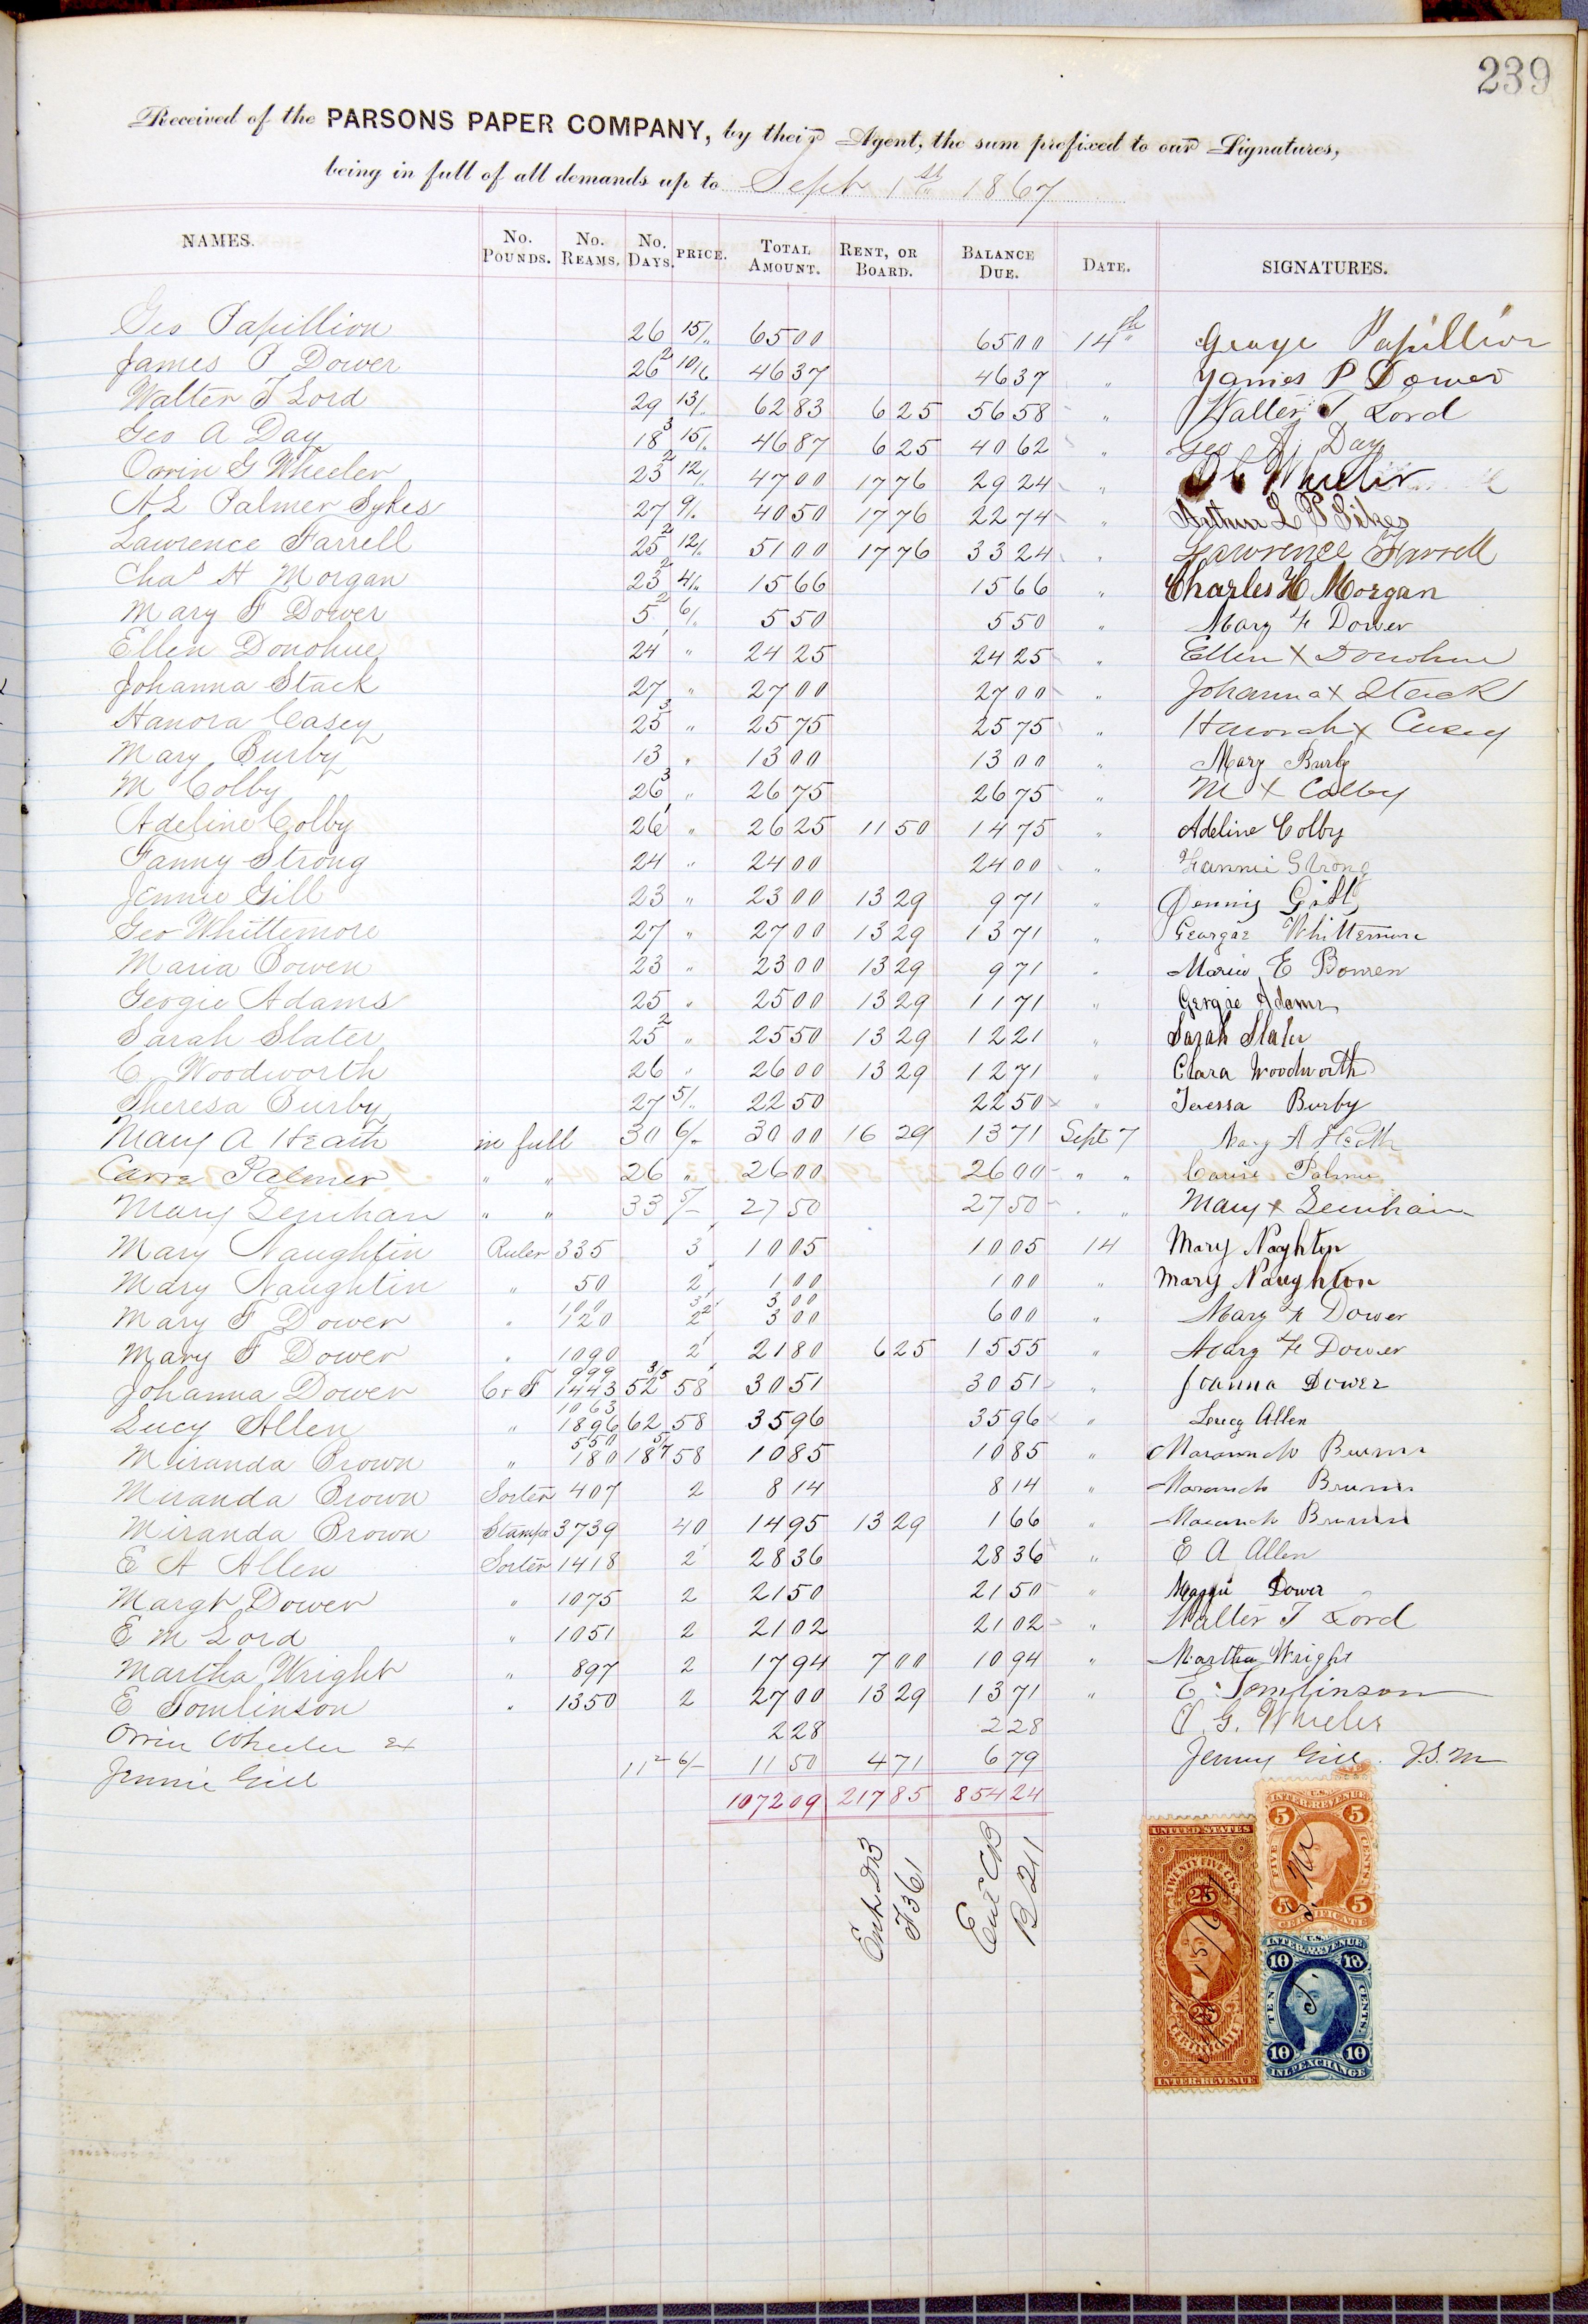 239
Received of the PARSONS PAPER COMPANY, by their Agent, the sum prefixed to our Signatures,
being in full of all demands up to Sept 1st 1867
NAMES. No. POUNDS. No. REAMS. No. DAYS. PRICE. TOTAL AMOUNT. RENT, OR BOARD. BALANCE DUE. DATE. SIGNATURES.
Geo Papillion 26 15/" 6500 6500 14th George Papillion
James P Dower 26 2 10/6 4637 4637 " James P Dower
Walter T Lord 29 13/" 6283 625 5658 " Walter T Lord
Geo A Day 18 3 15/" 4687 625 4062 " Geo A Day
Orrin G Wheeler 23 2 12/" 4700 1776 2924 " O G Wheeler
A L Palmer Sykes 27 9/" 4050 1776 2274 " Arthur L P Sikes
Lawrence Farrell 25 2 12/" 5100 1776 3324 " Lawrence Farrell
Chas H Morgan 23 2 4/" 1566 1566 " Charles H Morgan
Mary F Dower 5 2 6/" 550 550 " Mary F Dower
Ellen Donohue 24 1 " 2425 2425 " Ellen X Donohue
Johanna Stack 27 " 2700 2700 " Johanna X Stack
Hanora Casey 25 3 " 2575 2575 " Hanorah X Casey
Mary Burby 13 " 1300 1300 " Mary Burby
M Colby 26 3 " 2675 2675 " M X Colby
Adeline Colby 26 1 " 2625 1150 1475 " Adeline Colby
Fanny Strong 24 " 2400 2400 " Fannie Strong
Jennie Gill 23 " 2300 1329 971 " Jenny Gill
Geo Whittemore 27 " 2700 1329 1371 " Georgae Whittemore
Maria Bowen 23 " 2300 1329 971 " Maria E Bowen
Geogie Adams 25 " 2500 1329 1171 " Gergie Adams
Sarah Slater 25 2 " 2550 1329 1221 " Sarah Slater
C Woodworth 26 " 2600 1329 1271 " Clara Woodworth
Theresa Burby 27 5/" 2250 2250 " Teressa Burby
Mary A Heath in full 30 6/- 3000 1629 1371 Sept 7 Mary A Heath
Carre Palmer " " 26 " 2600 2600 " " Carrie Palmer
Mary Lenihan " " 33 5/- 2750 2750 " " Mary X Lenihan
Mary Naughtin Ruler 335 3 1005 1005 14 Mary Naghton
Mary Naughtin " 50 2 100 100 " Mary Naughton
100 3 300
Mary F Dower " 120 2 2 300 600 " Mary F Dower
Mary F Dower " 1090 2 2180 625 1555 " Mary F Dower
999 3/5
Johanna Dower C & F 1443 52 58 3051 3051 " Joanna Dower
1063
Lucy Allen " 1896 62 58 3596 3596 " Lucy Allen
550
Miranda Brown " 180 187 58 1085 1085 "
Miranda Brown Sorter 407 2 814 814 "
Miranda Brown Stamper 3739 40 1495 1329 166 "
E A Allen Sorter 1418 2 2836 2836 " E A Allen
Margt Dower " 1075 2 2150 2150 " Maggie Dower
E M Lord " 1051 2 2102 2102 " Walter T Lord
Martha Wright " 897 2 1794 700 1094 " Martha Wright
E Tomlinson " 1350 2 2700 1329 1371 " E Tomlinson
Orrin Wheeler 228 228 O. G. Wheeler
Jennie Gill 11 2 6/- 1150 471 679 Jenny Gill J.S.M
107209 21785 85424
Ent DB
F 361
Ent CB
P 211
UNITED STATES
TWENTY FIVE CTS.
25
25
CERTIFICATE
INTER. REVENUE
U.S.
INTER. REVENUE
5 5
FIVE CENTS
5 5
CERTIFICATE
U.S.
INTER. REVENUE
10 10
TEN CENTS.
10 10
INL. EXCHANGE